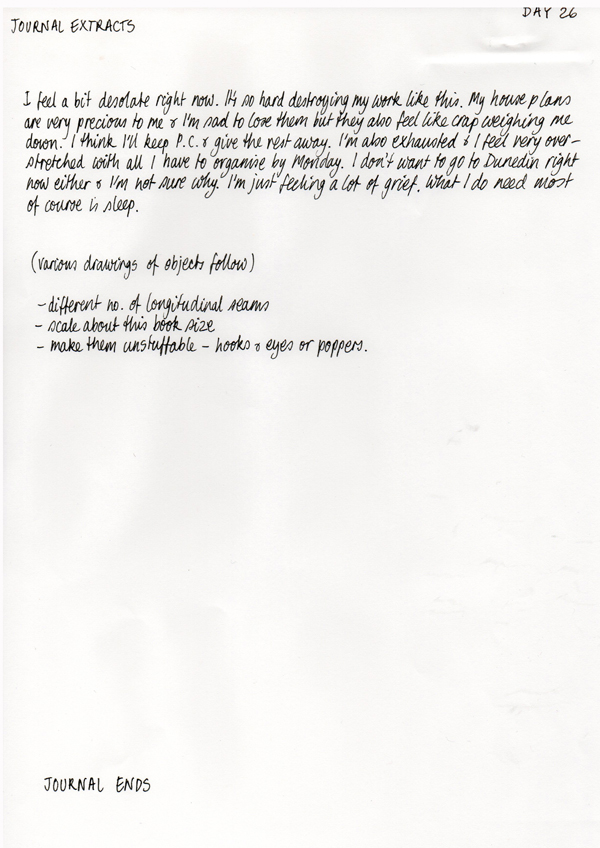 DAY 26
JOURNAL EXTRACTS
I feel a bit desolate right now. It's so hard destroying my work like this. My house plans
are very precious to me & I'm sad to lose them but they also feel like crap weighing me
down. I think I'll keep P.C. & give the rest away. I'm also exhausted & I feel very over-
stretched with all I have to organise by Monday. I don't want to go to Dunedin right
now either & I'm not sure why. I'm just feeling a lot of grief. What I do need most
of course is sleep.
(various drawings of objects follow)
- different no. of longitudinal seams
- scale about this book size
- make them unstuffable - hooks & eyes or poppers.
JOURNAL ENDS